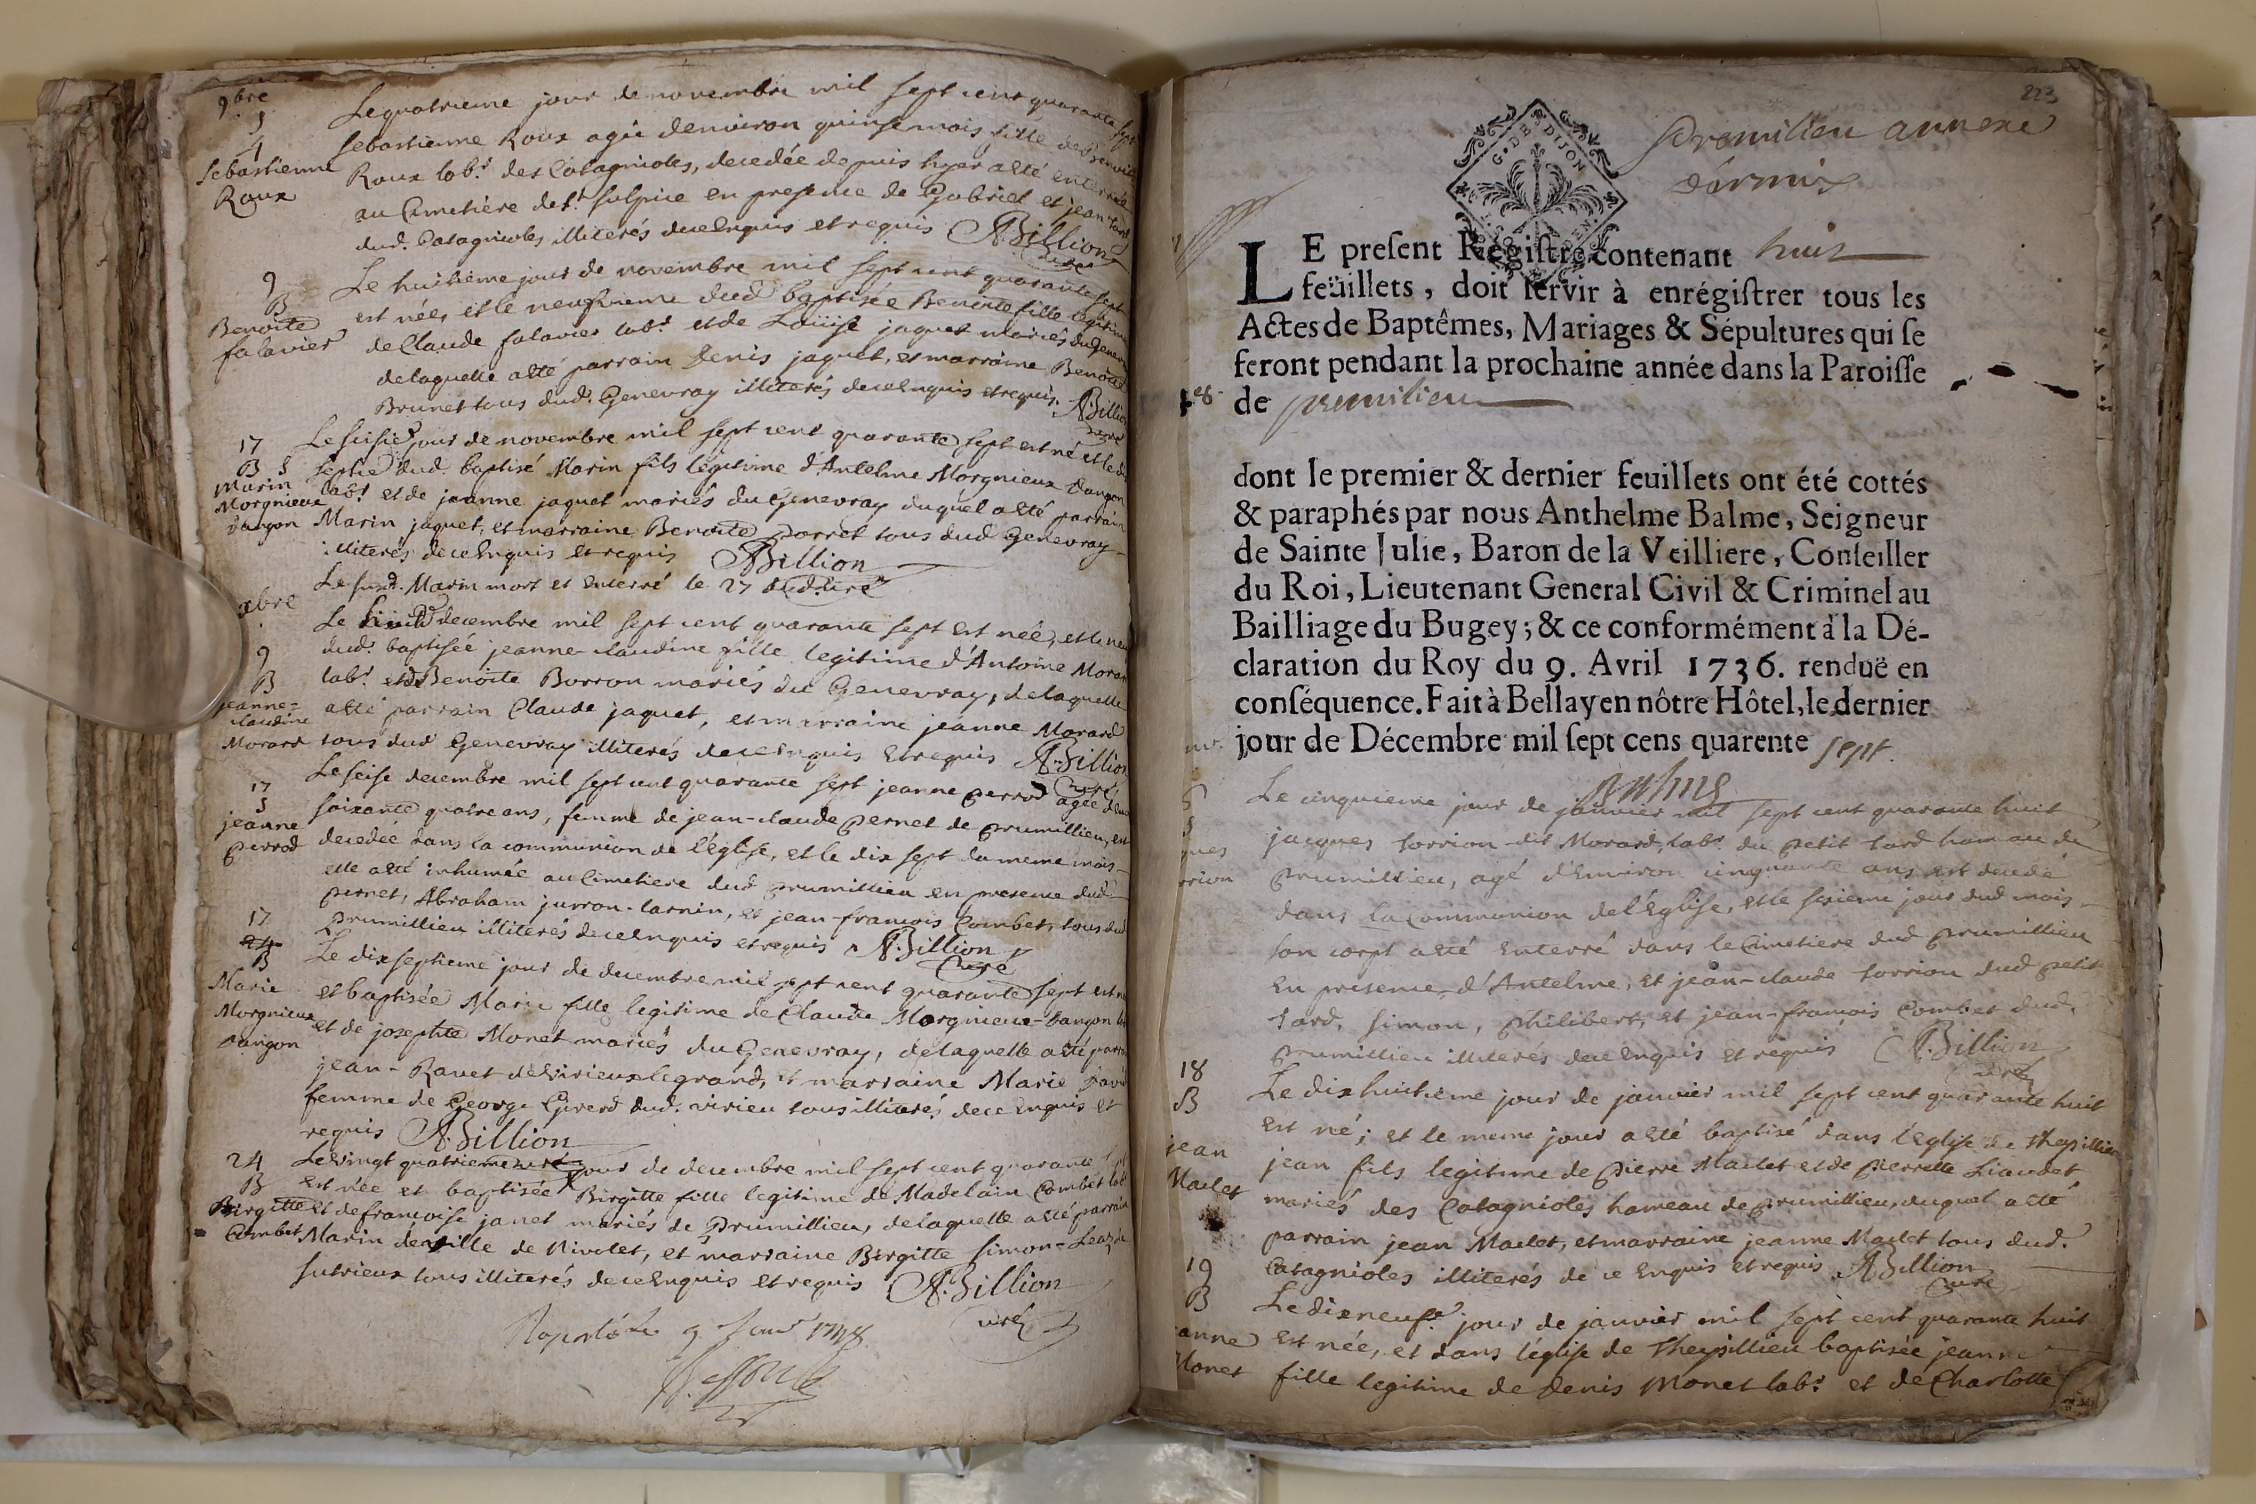 9bre
S
4
Sebastienne
Roux
Le quatrieme jour de novembre mil sept cent quarante sept
Sebastienne Roux agée denviron quinse mois fille de Benoit
Roux labr. des Catagnioles, decedée depuis hyer a esté enterrée
au Cimetière de St. Sulpice en presence de Gabriel et jean
dud. Catagnioles illiterés de ce Enquis et requis A. Billion
curé
9
B
Benoite
falavier
Le huitième jour de novembre mil sept cent quarante sept
est née, et le neufvieme dud. baptisée Benoite fille legitime
de Claude falavier labr. et de Loüise jaquet mariés du Genevray
de laquelle a esté parrain Denis jaquet, et marraine Benoite
Brunet tous dud. Genevray illiterés de ce Enquis et requis. A. Billion
curé
17
B S
Marin
Morgnieux
dangon
Le seisie. jour de novembre mil sept cent quarante sept est né et le dix
septie. dud. baptisé Marin fils legitime d'Antelme Morgnieux dangon
labr. et de jeanne jaquet mariés du Genevray duquel a esté parrain
Marin jaquet, et marraine Benoite porret tous dud Genevray
illiterés de ce Enquis et requis A. Billion
Le susd. Marin mort et enterré le 27 dud. curé
xbre
9
B
jeanne-
claudine
Morard
Le huit decembre mil sept cent quarante sept est née, et le neuf
dud. baptisée jeanne-claudine fille legitime d'Antoine Morard
labr. et de Benoite Borron mariés du Genevray, de laquelle
a esté parrain Claude jaquet, et marraine jeanne Morard
tous dud Genevray illiterés de ce Enquis et requis A. Billion
curé
17
S
jeanne
perrod
Le seise decembre mil sept cent quarante sept jeanne perrod agée d'env
soixante quatre ans, femme de jean-claude pernet de prumillieu, est
decedée dans la communion de l'église, et le dix sept du meme mois
elle a esté inhumée au Cimetiere dud prumillieu en presence dud
pernet, Abraham jurron-larnin, et jean-françois Combet, tous dud
prumillieu illiterés de ce Enquis et requis A. Billion
curé
17
24
B
Marie
Morgnieux
dangon
Le dixseptieme jour de decembre mil sept cent quarante sept est née
et baptisée Marie fille legitime de Claude Morgnieux-dangon
et de josephte Monet mariés du Genevray, de laquelle a esté parrain
jean-Ravet de Virieux le grand, et marraine Marie
femme de George Girerd dud. virieu tous illiterés de ce Enquis et
requis A. Billion
curé
24
B
Birgitte
Combet
Le vingt quatrieme jour de decembre mil sept cent quarante sept
est née et baptisée Birgitte fille legitime de Madelain Combet labr
et de francoise janet mariés de Prumillieu, de laquelle a esté parrain
Marin de ville de Nivolet, et marraine Birgitte Simon-
sutrieux tous illiterés de ce Enquis et requis A. Billion
curé
Raporté Le 9 Janv. 1748.
223
Premillieu annexe
G. D. B. S. DIJON
LE present Registre contenant huit
feüillets, doit servir à enrégistrer tous les
Actes de Baptêmes, Mariages & Sépultures qui se
feront pendant la prochaine année dans la Paroisse
de premilieu
dont le premier & dernier feuillets ont été cottés
& paraphés par nous Anthelme Balme, Seigneur
de Sainte Julie, Baron de la Veilliere, Conseiller
du Roi, Lieutenant General Civil & Criminel au
Bailliage du Bugey; & ce conformément à la Dé-
claration du Roy du 9. Avril 1736. renduë en
conséquence. Fait à Bellay en nôtre Hôtel, le dernier
jour de Décembre mil sept cens quarente sept.
Balme
Le cinquieme jour de janvier mil sept cent quarante huit
jacques torrion-dit Morard, labr. du petit tard hameau de
prumillieu, agé d'Environ cinquante ans est decedé
dans la communion de l'Eglise, et le sixieme jour dud mois
son corps a esté enterré dans le Cimetiere dud prumillieu
En presence d'Antelme, et jean-claude torrion dud petit
tard, Simon, philibert, et jean-françois Combet dud.
prumillieu illiterés de ce Enquis et requis A. Billion
curé
18
B
jean
Maclet
Le dix huitieme jour de janvier mil sept cent quarante huit
est né; et le meme jour a esté baptisé dans l'Eglise de theysillieu
jean fils legitime de pierre Maclet et de pierrette Liaudet
mariés des Catagnioles hameau de prumillieu, duquel a esté
parrain jean Maclet, et marraine jeanne Maclet tous dud.
Catagnioles illiterés de ce Enquis et requis A. Billion
curé
19
B
anne
Monet
Le dixneufe. jour de janvier mil sept cent quarante huit
est née, et dans l'église de theysillieu baptisée jeanne
fille legitime de denis Monet labr. et de Charlotte